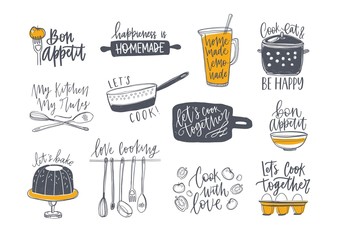 Bon
appétit
happiness is
HOMEMADE
home
made
lemo
nade
Cook, eat &
BE HAPPY
My Kitchen
My Rules
LET'S
COOK!
let's cook
together
bon
appétit
let's bake
love cooking
Cook
with
love
Let's Cook
together